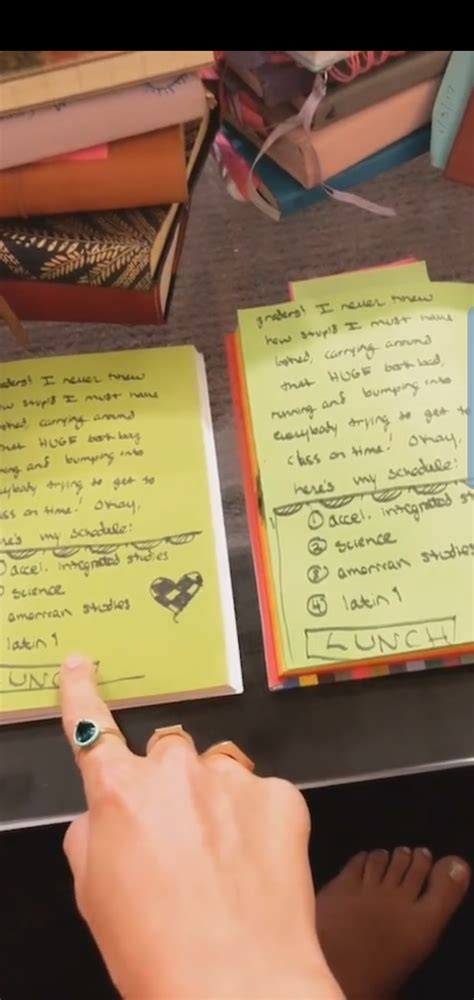 graders! I never knew
how stupid I must have
looked, carrying around
that HUGE book bag,
running and bumping into
everybody trying to get to
class on time! Okay,
here's my schedule:
① accel. integrated st
② science
③ american studies
④ latin 1
LUNCH
aders! I never knew
ow stupid I must have
oked, carrying around
hat HUGE book bag
ning and bumping into
ybody trying to get to
ss on time! Okay,
e's my schedule:
accel. integrated studies
science
american studies
latin 1
UNC